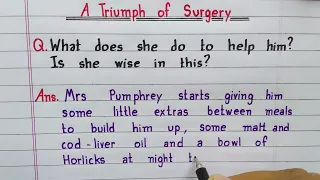 A Triumph of Surgery
Q. What does she do to help him?
Is she wise in this?
Ans. Mrs Pumphrey starts giving him
some little extras between meals
to build him up, some malt and
cod-liver oil and a bowl of
Horlicks at night t